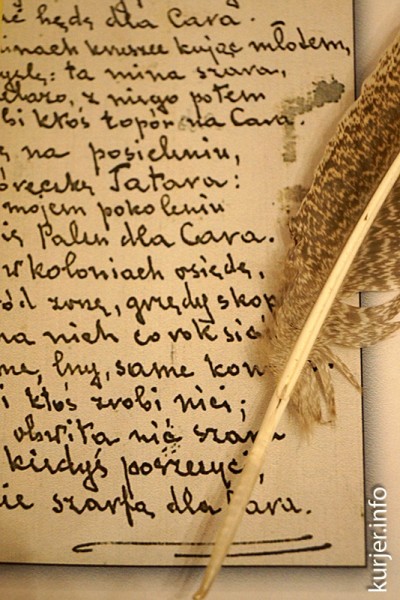 ć będę dla Cara.
inach kruszec kując młotem,
yślę: ta mina szara,
elazo, z niego potem
bi ktoś topór na Cara.
ę na posieleniu,
óreczkę Tatara:
mojem pokoleniu
ię Palen dla Cara.
w koloniach osiędę,
ód zorzę, grzędy skop
na nich co rok siać
me, lny, same kon
i ktoś zrobi nici;
obwita nić szara
kiedyś poszczyci,
ie szarfą dla Cara.
kurjer.info